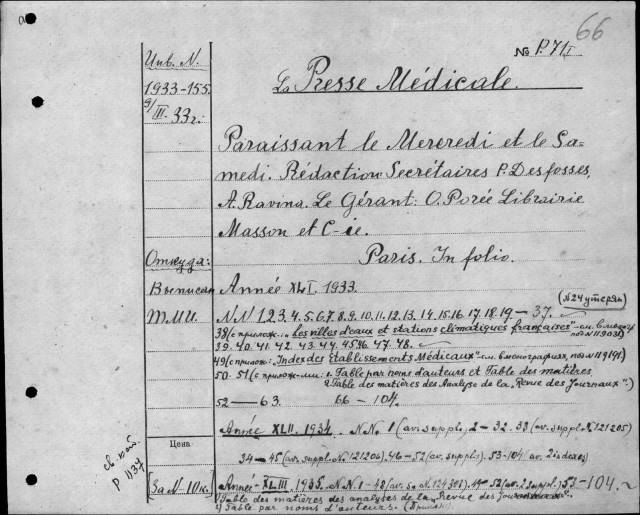 66
№ P.71I
Инв. N.
1933-155
9/III. 33г.
La Presse Médicale.
Paraissant le Mercredi et le Sa-
medi. Rédaction Secrétaires P. Desfosses,
A. Ravina. Le Gérant: O. Porée Librairie
Masson et C-ie.
Paris. In folio.
Откуда:
Выписан
Année XLI. 1933.
(N24 утерян)
Т.М.И.
NN 1.2.3.4.5.6.7.8.9.10.11.12.13.14.15.16.17.18.19 — 37.
38 (с прилож... "Les villes d'eaux et stations climatiques françaises"
39. 40. 41. 42. 43. 44. 45. 46. 47. 48.
49 (с прилож: "Index des Etablissements Médicaux" см. в монографиях, под N 119191.)
50. 51 (с прилож-ми: 1. Table par noms d'auteurs et Table des matières.
2. Table des matières des Analyse de la "Revue des Journaux".)
52 — 63. 66 — 104.
Année XLII. 1934. NN. 1 (av. suppl.) 2 — 32. 33 (av. suppl. N. 121205)
34 — 45 (av. suppl. N. 121206). 46 — 52 (av. suppl.). 53-104. av. 2 indexes
Цена
За N- 10к.
P 1137
Année XLIII. 1935. NN. 1 - 48 53 - 104.
1) Table des matières des analyses de la Revue des
2) Table par noms d'auteurs.